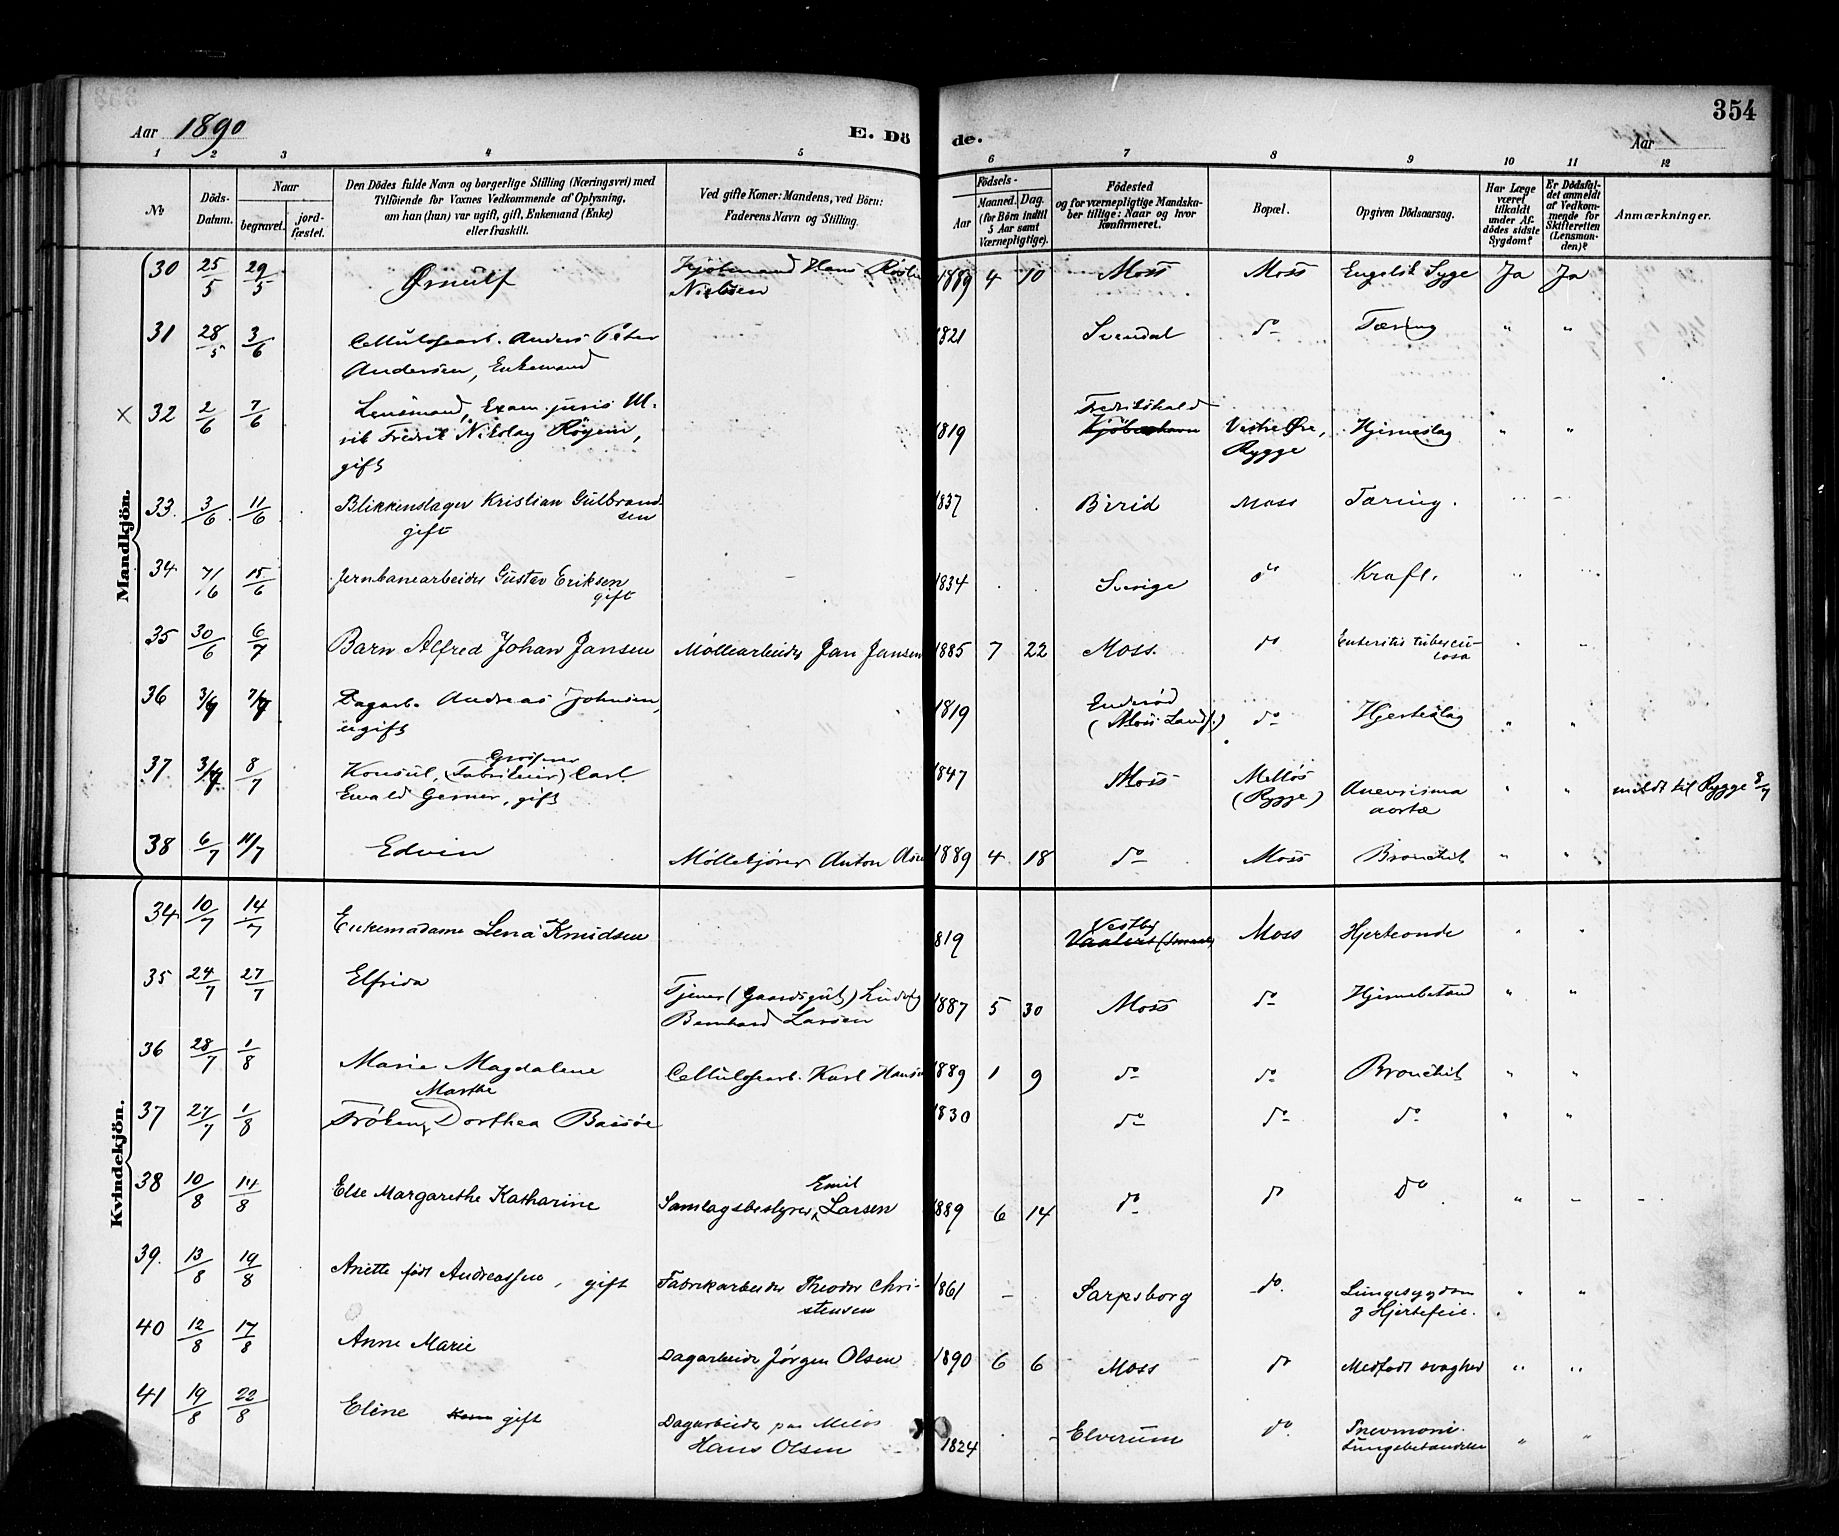 354
Aar 1890
E. Dö de.
Aar
1 2 3 4 5 6 7 8 9 10 11 12
No
Döds-Datum.
Naar begravet. jord-fæstet.
Den Dödes fulde Navn og borgerlige Stilling (Næringsvei) med
Tilföiende for Voxnes Vedkommende af Oplysning,
om han (hun) var ugift, gift, Enkemand (Enke)
eller fraskilt.
Ved gifte Koner: Mandens, ved Börn:
Faderens Navn og Stilling.
Födsels-
Aar
Maaned. Dag.
(for Börn indtil
5 Aar samt
Værnepligtige).
Födested
og for værnepligtige Mandska-
ber tillige: Naar og hvor
konfirmeret.
Bopæl.
Opgiven Dödsaarsag.
Har Læge
været
tilkaldt
under Af-
dödes sidste
Sygdom?
Er Dödsfal-
det anmeldt
af Vedkom-
mende for
Skifteretten
(Lensman-
den)?
Anmærkninger.
Mandkjön.
30 25/5 29/5 Ørnulf Hans Nielsen 1889 4 10 Moss Moss Engelsk Syge Ja Ja
31 28/5 3/6 Cellulosearb. Anders Peter
Andersen, Enkemand 1821 Svendal do Tæring " "
× 32 2/6 7/6 Lensmand, Exam. juris Ul-
rik Fredrik Nikolay Røyem,
gift 1819 Fredrikshald
Kjöbenhavn Rygge Hjerneslag " "
33. 3/6 11/6 Blikkenslager Kristian Gulbrand-
sen
gift 1837 Birid Moss Tæring. " "
34 7/6 15/6 Jernbanearbeider Gustav Eriksen
gift 1834 Sverige do Kræft. " "
35 30/6 6/7 Barn Alfred Johan Jansen Møllearbeider Jan Jansen 1885 7 22 Moss. do Enteritis tubercu-
losa " "
36 3/7 7/7 Dagarb. Andreas Johnsen,
ugift 1819 (Moss Lands.) do Hjerteslag " "
37. 3/7 8/7 Konsul, (Fabrikeier) Carl
Ewald Gerner, gift 1847 Moss Melløs
(Rygge) Aneurisma
aortæ " " meldt til Rygge 8/7
38 6/7 11/7 Edvin Møllekjører Anton 1889 4 18 do Moss Bronchit " "
Kvindekjön.
34 10/7 14/7 Enkemadame Lena Knudsen 1819 Vestby Moss Hjerteonde " "
35 24/7 27/7 Elfrida Tjener (Gaardsgut) Ludvig
Bernhard Larsen 1887 5 30 Moss do Hjernebetænd " "
36 28/7 1/8 Marie Magdalene Cellulosearb. Karl Hansen 1889 1 9 do do Bronchit " "
37 27/7 1/8 Marthe
Frøken, Dorthea Bassøe 1830 do do do " "
38 10/8 14/8 Else Margarethe Katharine Samlagsbestyrer Emil Larsen 1889 6 14 do do do " "
39. 13/8 19/8 Anette født Andreassen, gift Fabrikarbeider Theodor Chri-
stensen 1861 – Sarpsborg do. Lungesygdom
& Hjertefeil. " "
40 12/8 17/8 Anne Marie Dagarbeider Jørgen Olsen 1890 6 6 Moss do Medfødt svaghed " "
41 19/8 22/8 Eline gift Dagarbeider paa Meløs
Hans Olsen 1824 Elverum do. Pneumoni.
Lungebetændelse " "